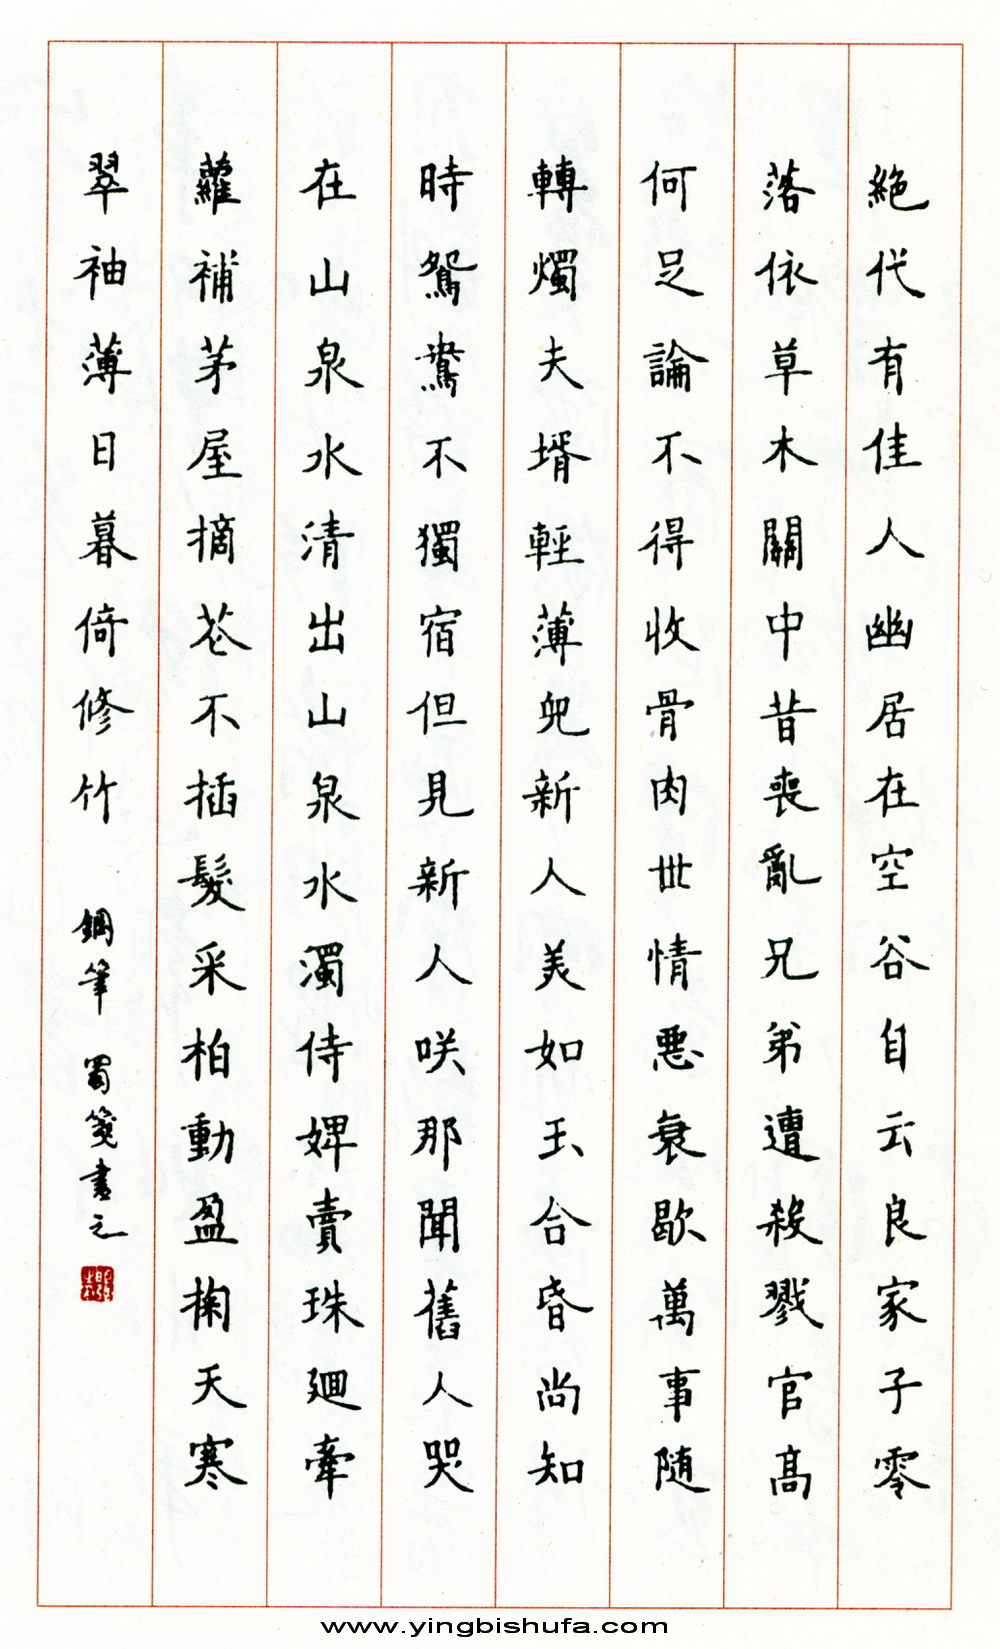 絶代有佳人幽居在空谷自云良家子零
落依草木關中昔喪亂兄弟遭殺戮官高
何足論不得收骨肉世情惡衰歇萬事随
轉燭夫壻輕薄兒新人美如玉合昏尚知
時鴛鴦不獨宿但見新人咲那聞舊人哭
在山泉水清出山泉水濁侍婢賣珠廻牽
蘿補茅屋摘花不插髮采柏動盈掬天寒
翠袖薄日暮倚修竹 鋼筆 蜀箋書之
www.yingbishufa.com